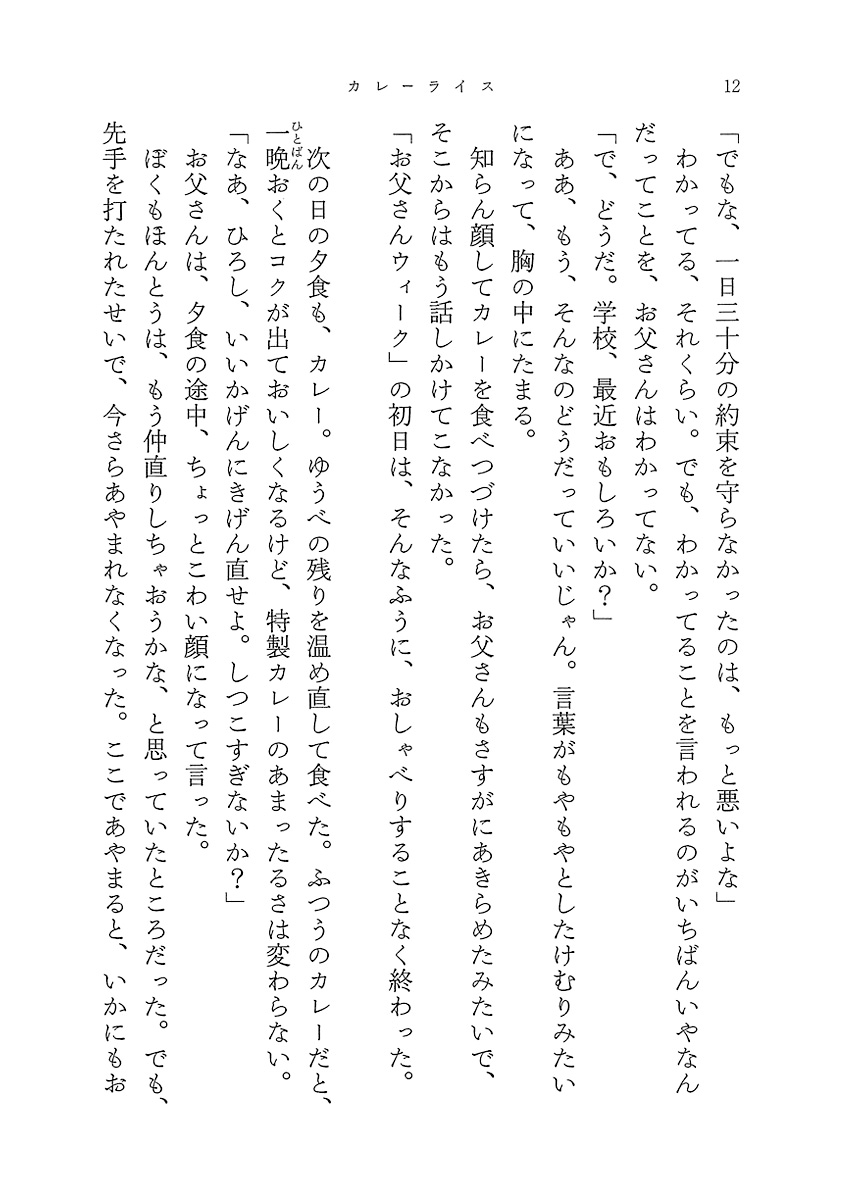 カレーライス
12
「でもな、一日三十分の約束を守らなかったのは、もっと悪いよな」
わかってる、それくらい。でも、わかってることを言われるのがいちばんいやなん
だってことを、お父さんはわかってない。
「で、どうだ。学校、最近おもしろいか？」
ああ、もう、そんなのどうだっていいじゃん。言葉がもやもやとしたけむりみたい
になって、胸の中にたまる。
知らん顔してカレーを食べつづけたら、お父さんもさすがにあきらめたみたいで、
そこからはもう話しかけてこなかった。
「お父さんウィーク」の初日は、そんなふうに、おしゃべりすることなく終わった。
次の日の夕食も、カレー。ゆうべの残りを温め直して食べた。ふつうのカレーだと、
ひとばん
一晩おくとコクが出ておいしくなるけど、特製カレーのあまったるさは変わらない。
「なあ、ひろし、いいかげんにきげん直せよ。しつこすぎないか？」
お父さんは、夕食の途中、ちょっとこわい顔になって言った。
ぼくもほんとうは、もう仲直りしちゃおうかな、と思っていたところだった。でも、
先手を打たれたせいで、今さらあやまれなくなった。ここであやまると、いかにもお